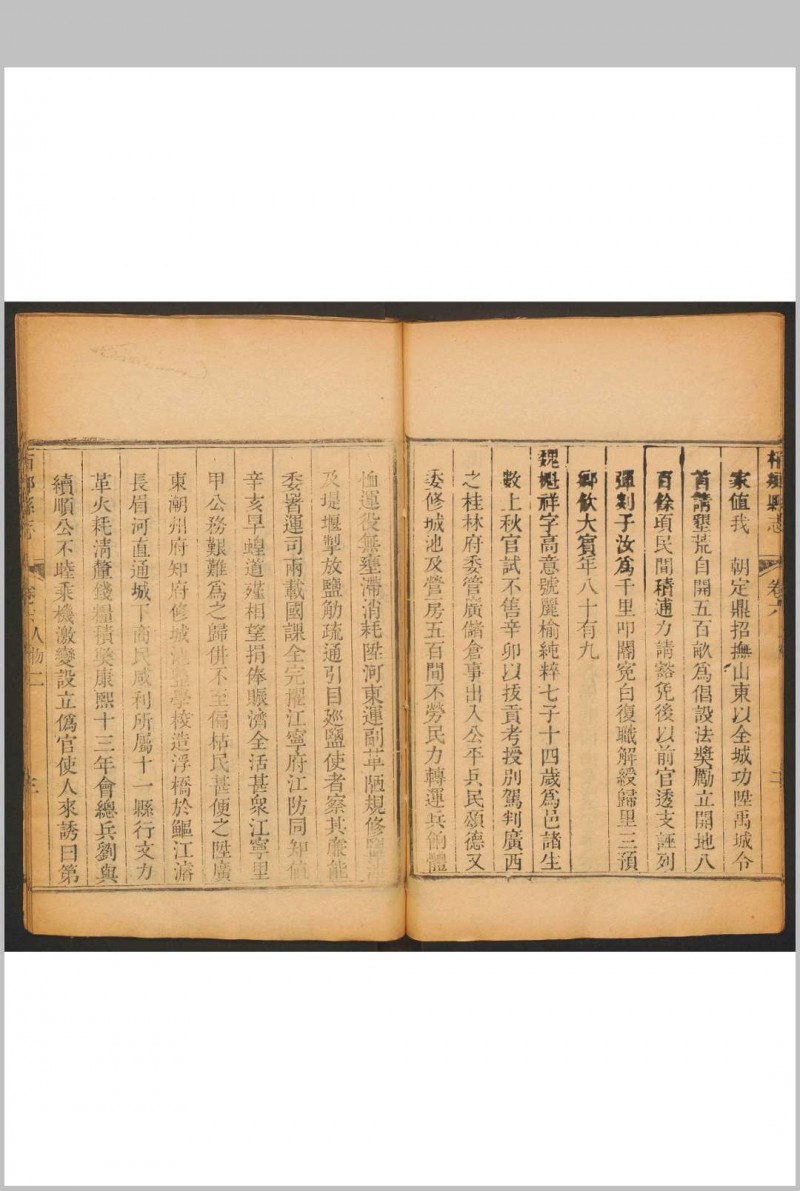 柏鄉縣志 卷六
家值我 朝定鼎招撫山東以全城功陞禹城令
首請墾荒自開五百畝爲倡設法獎勵立開地八
百餘頃民間積逋力請豁免後以前官透支誣列
彈刻子汝爲千里叩閽寃白復職解綬歸里三預
鄉飲大賓年八十有九
魏魁祥字高意號麗榆純粹七子十四歲爲邑諸生
數上秋官試不售辛卯以拔貢考授別駕判廣西
之桂林府委管廣儲倉事出入公平兵民頌德又
委修城池及營房五百間不勞民力轉運兵餉體
恤運役無壅滯消耗陞河東運副革陋規修鹽池
及堤堰掣放鹽觔疏通引目廵鹽使者察其廉能
委署運司兩載國課全完擢江寧府江防同知值
辛亥旱蝗道殣相望捐俸賑濟全活甚衆江寧里
甲公務艱難爲之歸併不至偏枯民甚便之陞廣
東潮州府知府修城池建學校造浮橋於鱷江濬
長眉河直通城下商民咸利所屬十一縣行文力
革火耗清釐錢糧積獘康熙十三年會總兵劉與
續順公不睦乘機激變設立僞官使人來誘曰第
柏鄉縣志 卷六 人物二 三